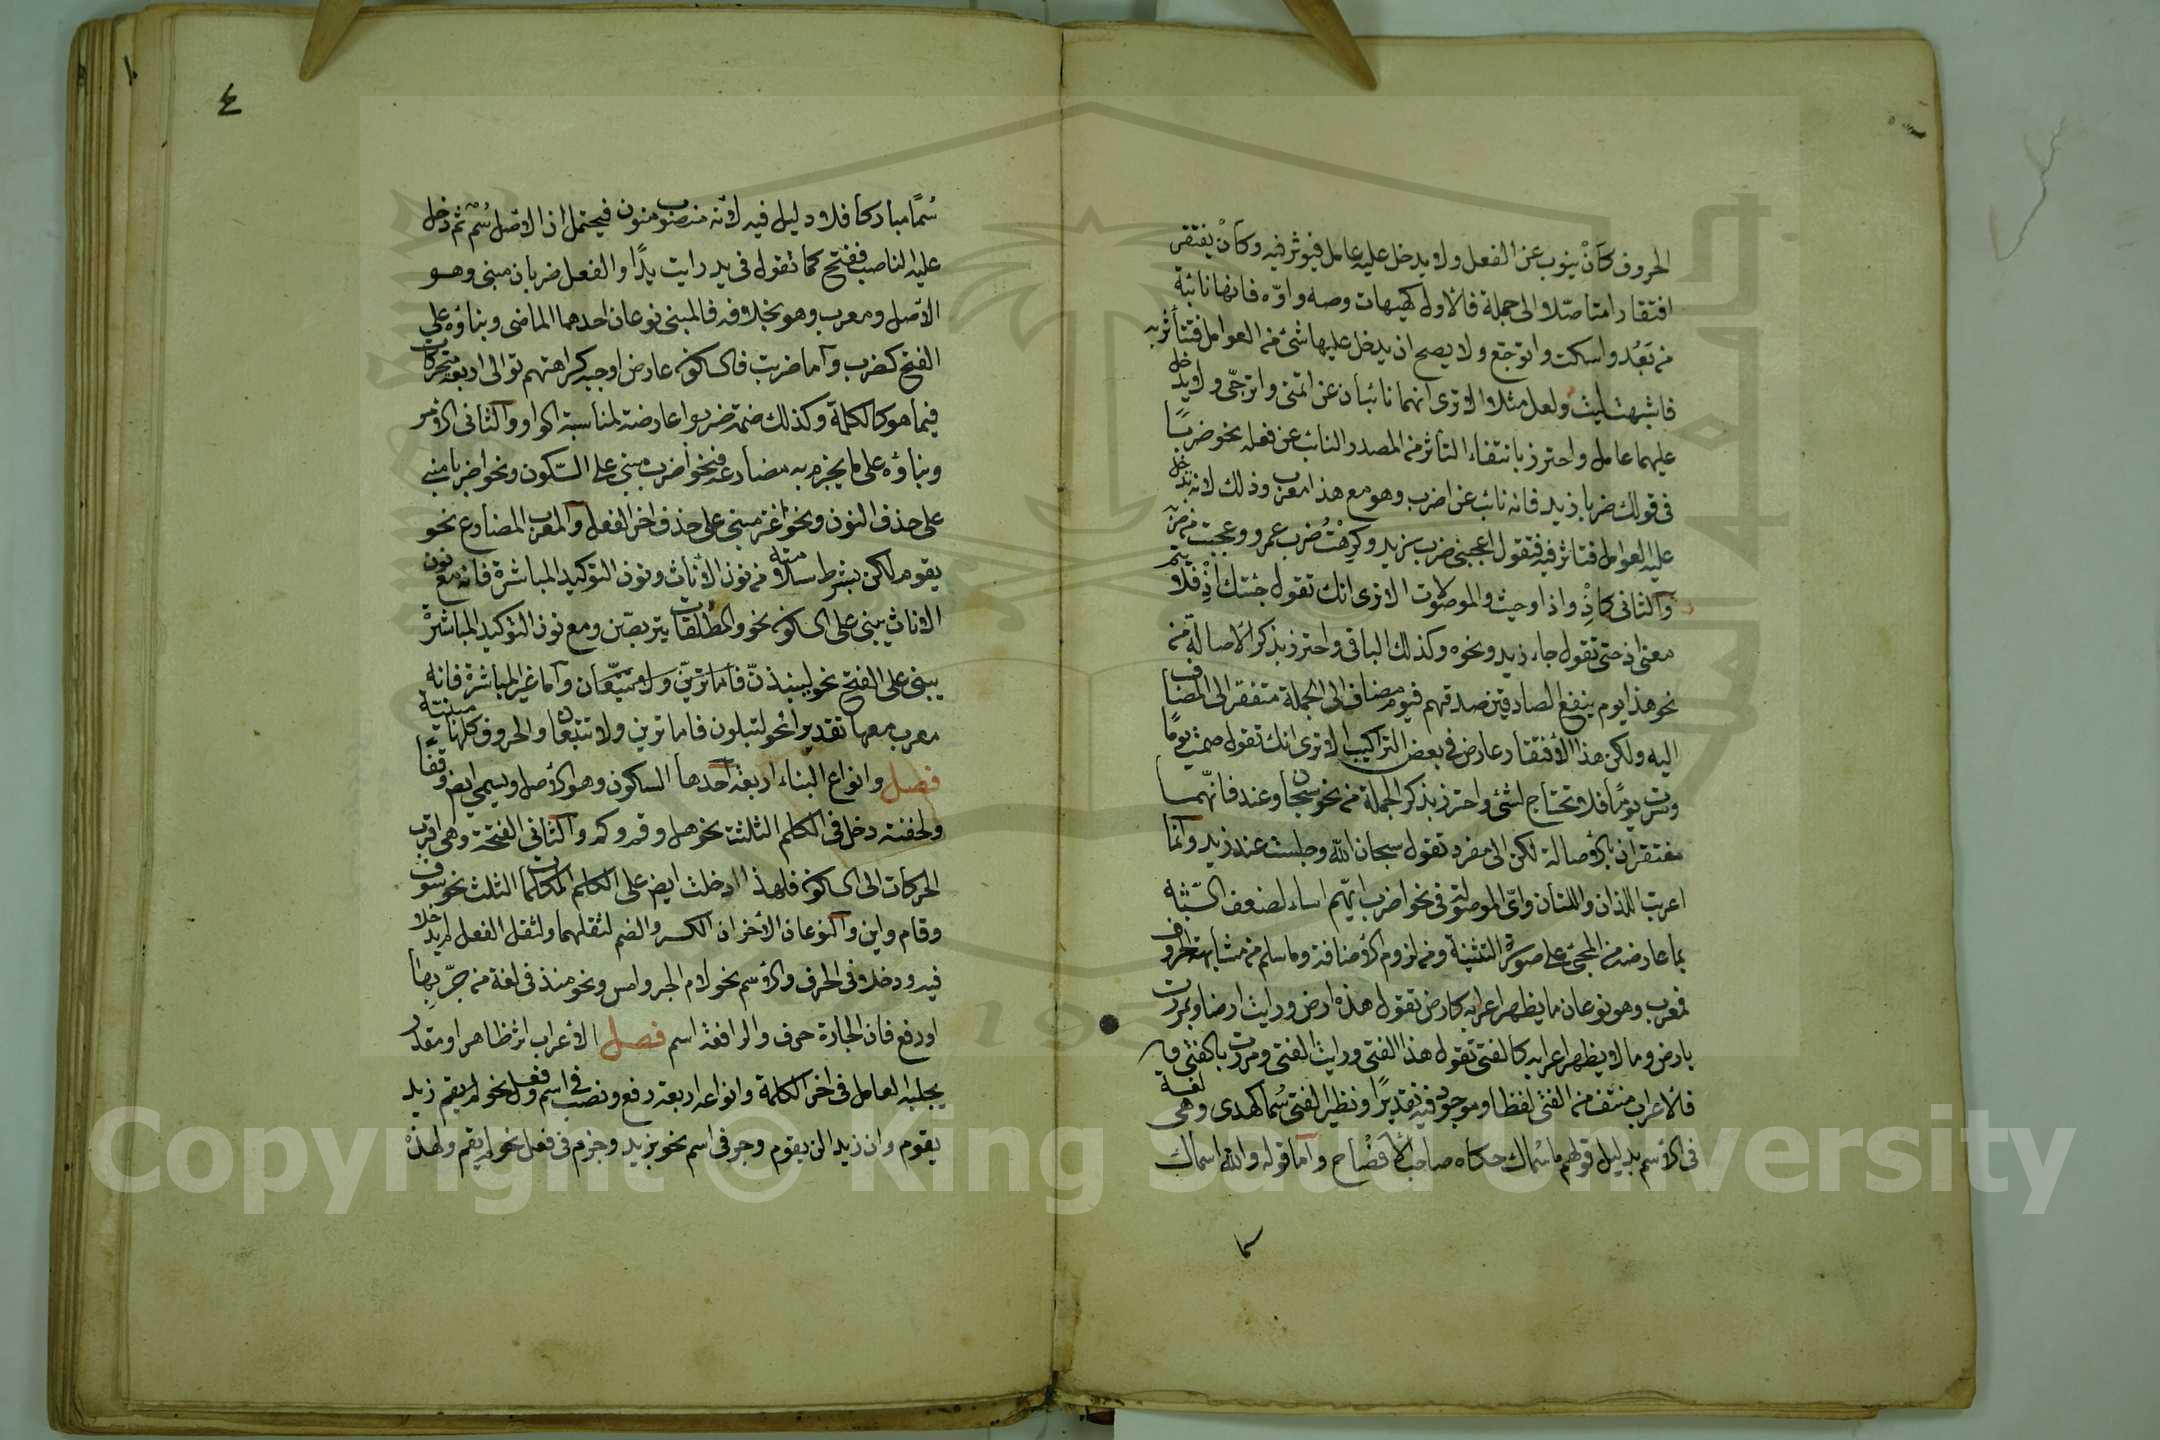 الحروف كأن ينوب عن الفعل ولا يدخل عليه عامل فيوثر فيه وكأن يفتقر
افتقارا متاصلا الى جملة فالاول كهيهات وصه واوّه فانها نائبة
من بَعُد واسكت واتوجع ولا يصح ان يدخل عليها شئ من العوامل فتتأثر به
فاشبهت ليت ولعل مثلا الا ترى انهما نائبان عن اتمنى واترجّى ولا يدخل
عليهما عامل واحترز بانتفاء التأثر من المصدر النائب عن فعله نحو ضربًا
فى قولك ضربا زيد فانه نائب عن اضرب وهو مع هذا معرب وذلك لانه تدخل
عليه العوامل فتاثر فيه فتقول اعجبنى ضرب زيد وكرهتُ ضرب عمرو وعجبت من ضربه
والثانى كاذْ واذا وحيث والموصولات الا ترى انك تقول جئتك اذْ فلا يتم
معنى اذ حتى تقول جاء زيد ونحوه وكذلك الباقى واحترز بذكر الاصالة من
نحو هذا يوم ينفع الصادقين صدقهم فيوم مضاف الى الجملة متفقر الى المضاف
اليه ولكن هذا الافتقار عارض فى بعض التراكيب الا ترى انك تقول صمت يومًا
وسرت يومًا فلا تحتاج لشئ واحترز بذكر الجملة من نحو سبحان وعند فانّهما
مفتقران بالاصالة لكن الى مفرد تقول سبحان الله وجلست عند زيد وانما
اعربت اللذان واللتان واىّ الموصولة فى نحو اضرب ايّهم اساء لضعف الشبه
بما عارضه من المجئ على صورة التثنية ومن لزوم الاضافة وما سلم من مشابهة الحروف
فمعرب وهو نوعان ما يظهر اعرابه كارض تقول هذه ارض ورايت ارضا ومررت
بارض وما لا يظهر اعرابه كالفتى تقول هذا الفتى ورايت الفتى ومررت بالفتى
فالاعراب منتف من الفتى لفظا وموجود فيه تقديرًا ونظير الفتى سُما كهدى وهى لغة
فى الاسم بدليل قولهم ما سُماك حكاه صاحب الافصاح واما قوله والله اسماك
سما
٤
سُمًا مباركا فلا دليل فيه لانه منصوب منون فيحتمل ان الاصل سُمٌ ثم دخل
عليه الناصب ففتح كما تقول فى يد رايت يدًا والفعل ضربان مبنى وهو
الاصل ومعرب وهو بخلافه فالمبنى نوعان احدهما الماضى وبناؤه على
الفتح كضرب واما ضربت فالسكون عارض اوجبه كراهتهم توالى اربع متحركات
فيما هو كالكلمة وكذلك ضمة ضربوا عارضة لمناسبة الواو والثانى الامر
وبناؤه على ما يجزم به مضارعه فنحو اضرب مبنى على السّكون ونحو اضربا مبنى
على حذف النون ونحو اغز مبنى على حذف اخر الفعل والمعرب المضارع نحو
يقوم لكن بشرط سلامته من نون الاناث ونون التوكيد المباشرة فانه مع نون
الاناث يبنى على السكون نحو والمطلقات يتربصن ومع نون التوكيد المباشرة
يبنى على الفتح نحو لينبذنّ فاما ترينّ ولا تتبعان واما غير المباشرة فانه
معرب معها تقديرا نحو لتبلون فاما ترين ولا تتبعان والحروف كلها مبنيّة
فصل وانواع البناء اربعة احدها السكون وهو الاصل ويسمى ايض وقفًا
ولخفته دخل فى الكلم الثلث نحو هل وقم وكم والثانى الفتحة وهى اقرب
الحركات الى السكون فلهذا دخلت ايض على الكلم الكلمات الثلث نحو سوف
وقام واين والنوعان الأخران الكسر والضم لثقلهما ولثقل الفعل لم يدخلا
فيه ودخلا فى الحرف والاسم نحو لام الجر وامس ونحو منذ فى لغة من جرّ بها
او رفع فان الجارة حرف والرافعة اسم فصل الاعراب اثر ظاهر او مقدر
يجلبه العامل فى اخر الكلمة وانواعه اربعة رفع ونصب فى اسم وفعل نحو لم يقم زيد
يقوم وان زيدا لن يقوم وجر فى اسم نحو بزيد وجزم فى فعل نحو لم يقم ولهذه
Copyright © King Saud University